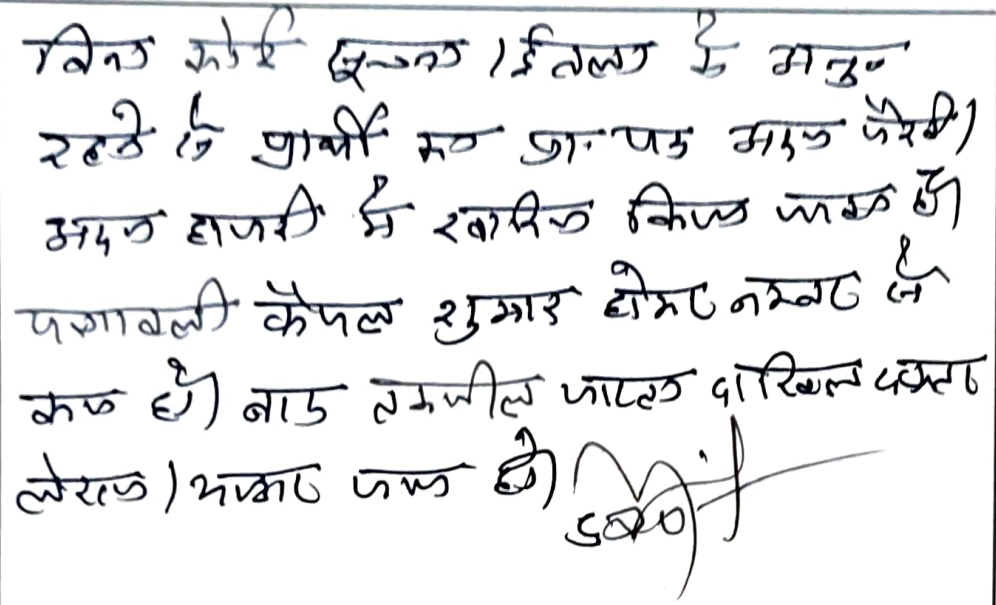 बिना कोई सूचना / ईतला के
रहने से प्रार्थी का प्रा. पत्र अदम पैरवी /
अदम हाजरी में खारिज किया जाता है।
पत्रावली फैसल शुमार होकर नम्बर से
कम हो। बाद तकमील दाखिल दफ्तर
हो।
SDO